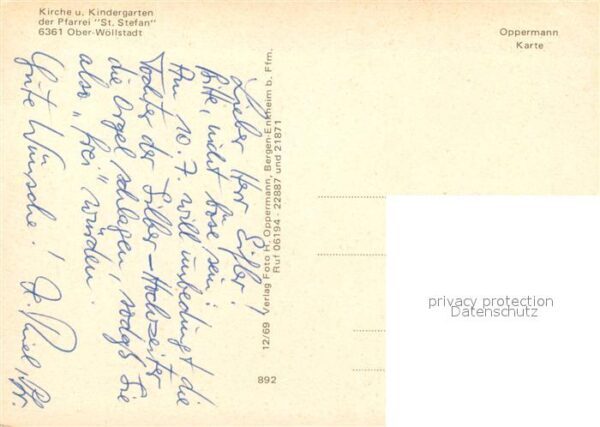 Kirche u. Kindergarten
der Pfarrei "St. Stefan"
6361 Ober-Wöllstadt
Oppermann
Karte
Lieber Herr
Bitte, nicht böse sein!
Am 10.7. will unbedingt die
Tochter der Silber-Hochzeiter
die Orgel schlagen, sodaß Sie
also "frei" würden.
Gute Wünsche!
12/69 Verlag Foto H. Oppermann, Bergen-Enkheim b. Ffm.
Ruf 06194 · 22887 und 21871
892
privacy protection
Datenschutz